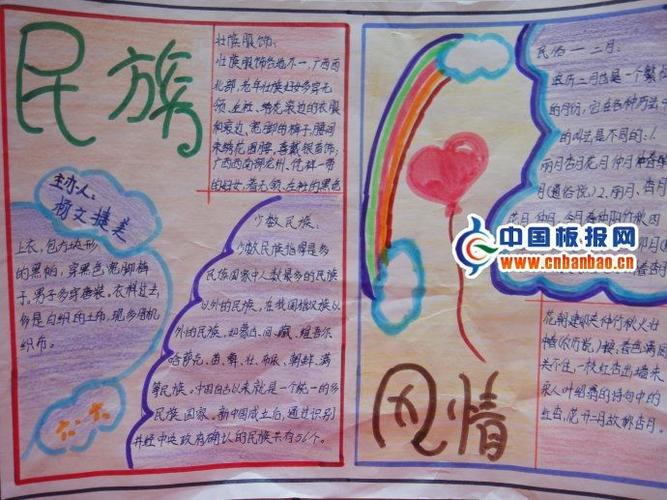 民族
壮族服饰:
壮族服饰各地不一,广西西
北部,老年壮族妇女多穿无
领、左衽、绣花滚边的衣服
和滚边、宽脚的裤子,腰间
束绣花围腰,喜戴银首饰;
广西西南部龙州、凭祥一带
的妇女,着无领、左衽的黑色
主办人:
杨文捷美
上衣,包方块形
的黑帕,穿黑色宽脚裤
子,男子多穿唐装。衣料过去
多是自织的土布,现多用机
织布。
六、六
少数民族:
少数民族指得是多
民族国家中人数最多的民族
以外的民族,在我国指汉族以
外的民族,如蒙古、回、藏、维吾尔
哈萨克、苗、彝、壮、布依、朝鲜、满
等民族。中国自古以来就是一个统一的多
民族国家。新中国成立后,通过识别
并经中央政府确认的民族共有56个。
风情
民俗一二月:
农历二月也是一个
的月份,它在各种
的叫法是不同的:1、
月(通俗说)2、丽月、杏月
花朝
关不住,一枝红杏出墙来
红杏,花开二月故称杏月。
中国板报网
www.cnbanbao.cn